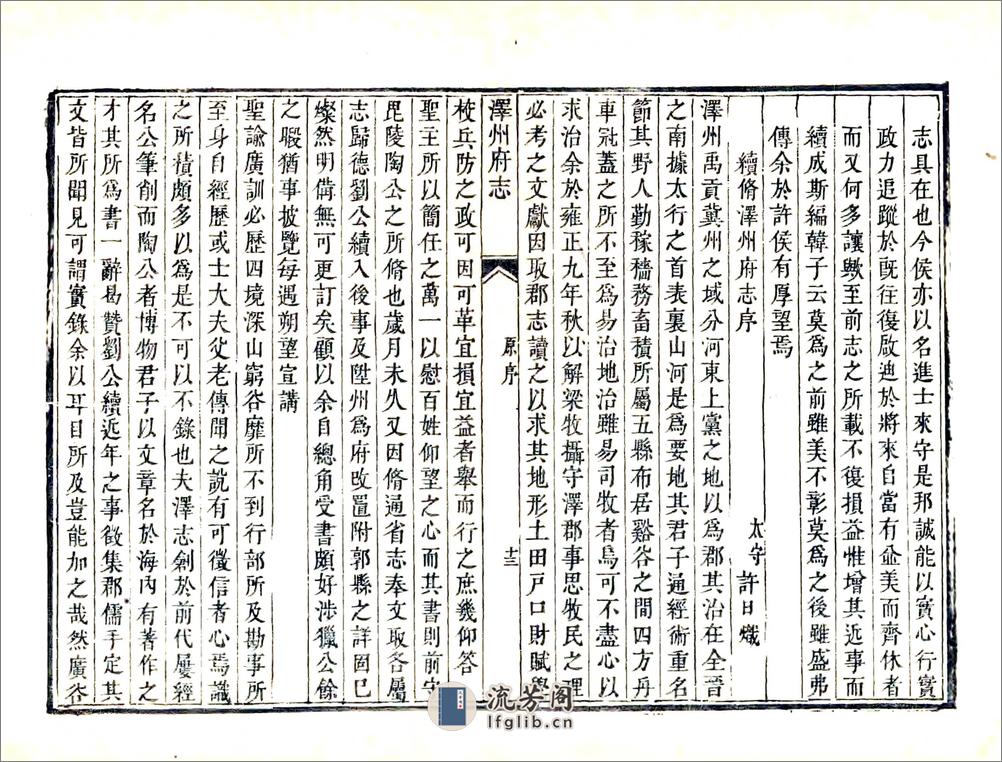 志具在也今侯亦以名進士來守是邦誠能以實心行實
政力追蹤於旣往復啟迪於將來自當有益美而齊休者
而又何多讓歟至前志之所載不復損益惟增其近事而
續成斯編韓子云莫爲之前雖美不彰莫爲之後雖盛弗
傳余於許侯有厚望焉
續脩澤州府志序
太守許日熾
澤州禹貢冀州之域分河東上黨之地以爲郡其治在全晉
之南據太行之首表裏山河是爲要地其君子通經術重名
節其野人勤稼穡務畜積所屬五縣布居谿谷之間四方丹
車冠蓋之所不至爲易治地治雖易司牧者烏可不盡心以
求治余於雍正九年秋以解梁牧攝守澤郡事思牧民之理
必考之文獻因取郡志讀之以求其地形土田戸口財賦學
澤州府志
原序
十三
校兵防之政可因可革宜損宜益者舉而行之庶幾仰答
聖主所以簡任之萬一以慰百姓仰望之心而其書則前守
毘陵陶公之所脩也歲月未久又因脩通省志奉文取各屬
志歸德劉公續入後事及陞州爲府改置附郭縣之詳固已
燦然明備無可更訂矣顧以余自總角受書頗好涉獵公餘
之暇猶事披覽每遇朔望宣講
聖諭廣訓必歷四境深山窮谷靡所不到行部所及勘事所
至身自經歷或士大夫父老傳聞之說有可徵信者心焉識
之所積頗多以爲是不可以不錄也夫澤志剏於前代屢經
名公筆削而陶公者博物君子以文章名於海內有著作之
才其所爲書一辭曷贊劉公續近年之事徵集郡儒手定其
文皆所聞見可謂實錄余以耳目所及豈能加之哉然廣谷
流芳阁
lfglib.cn